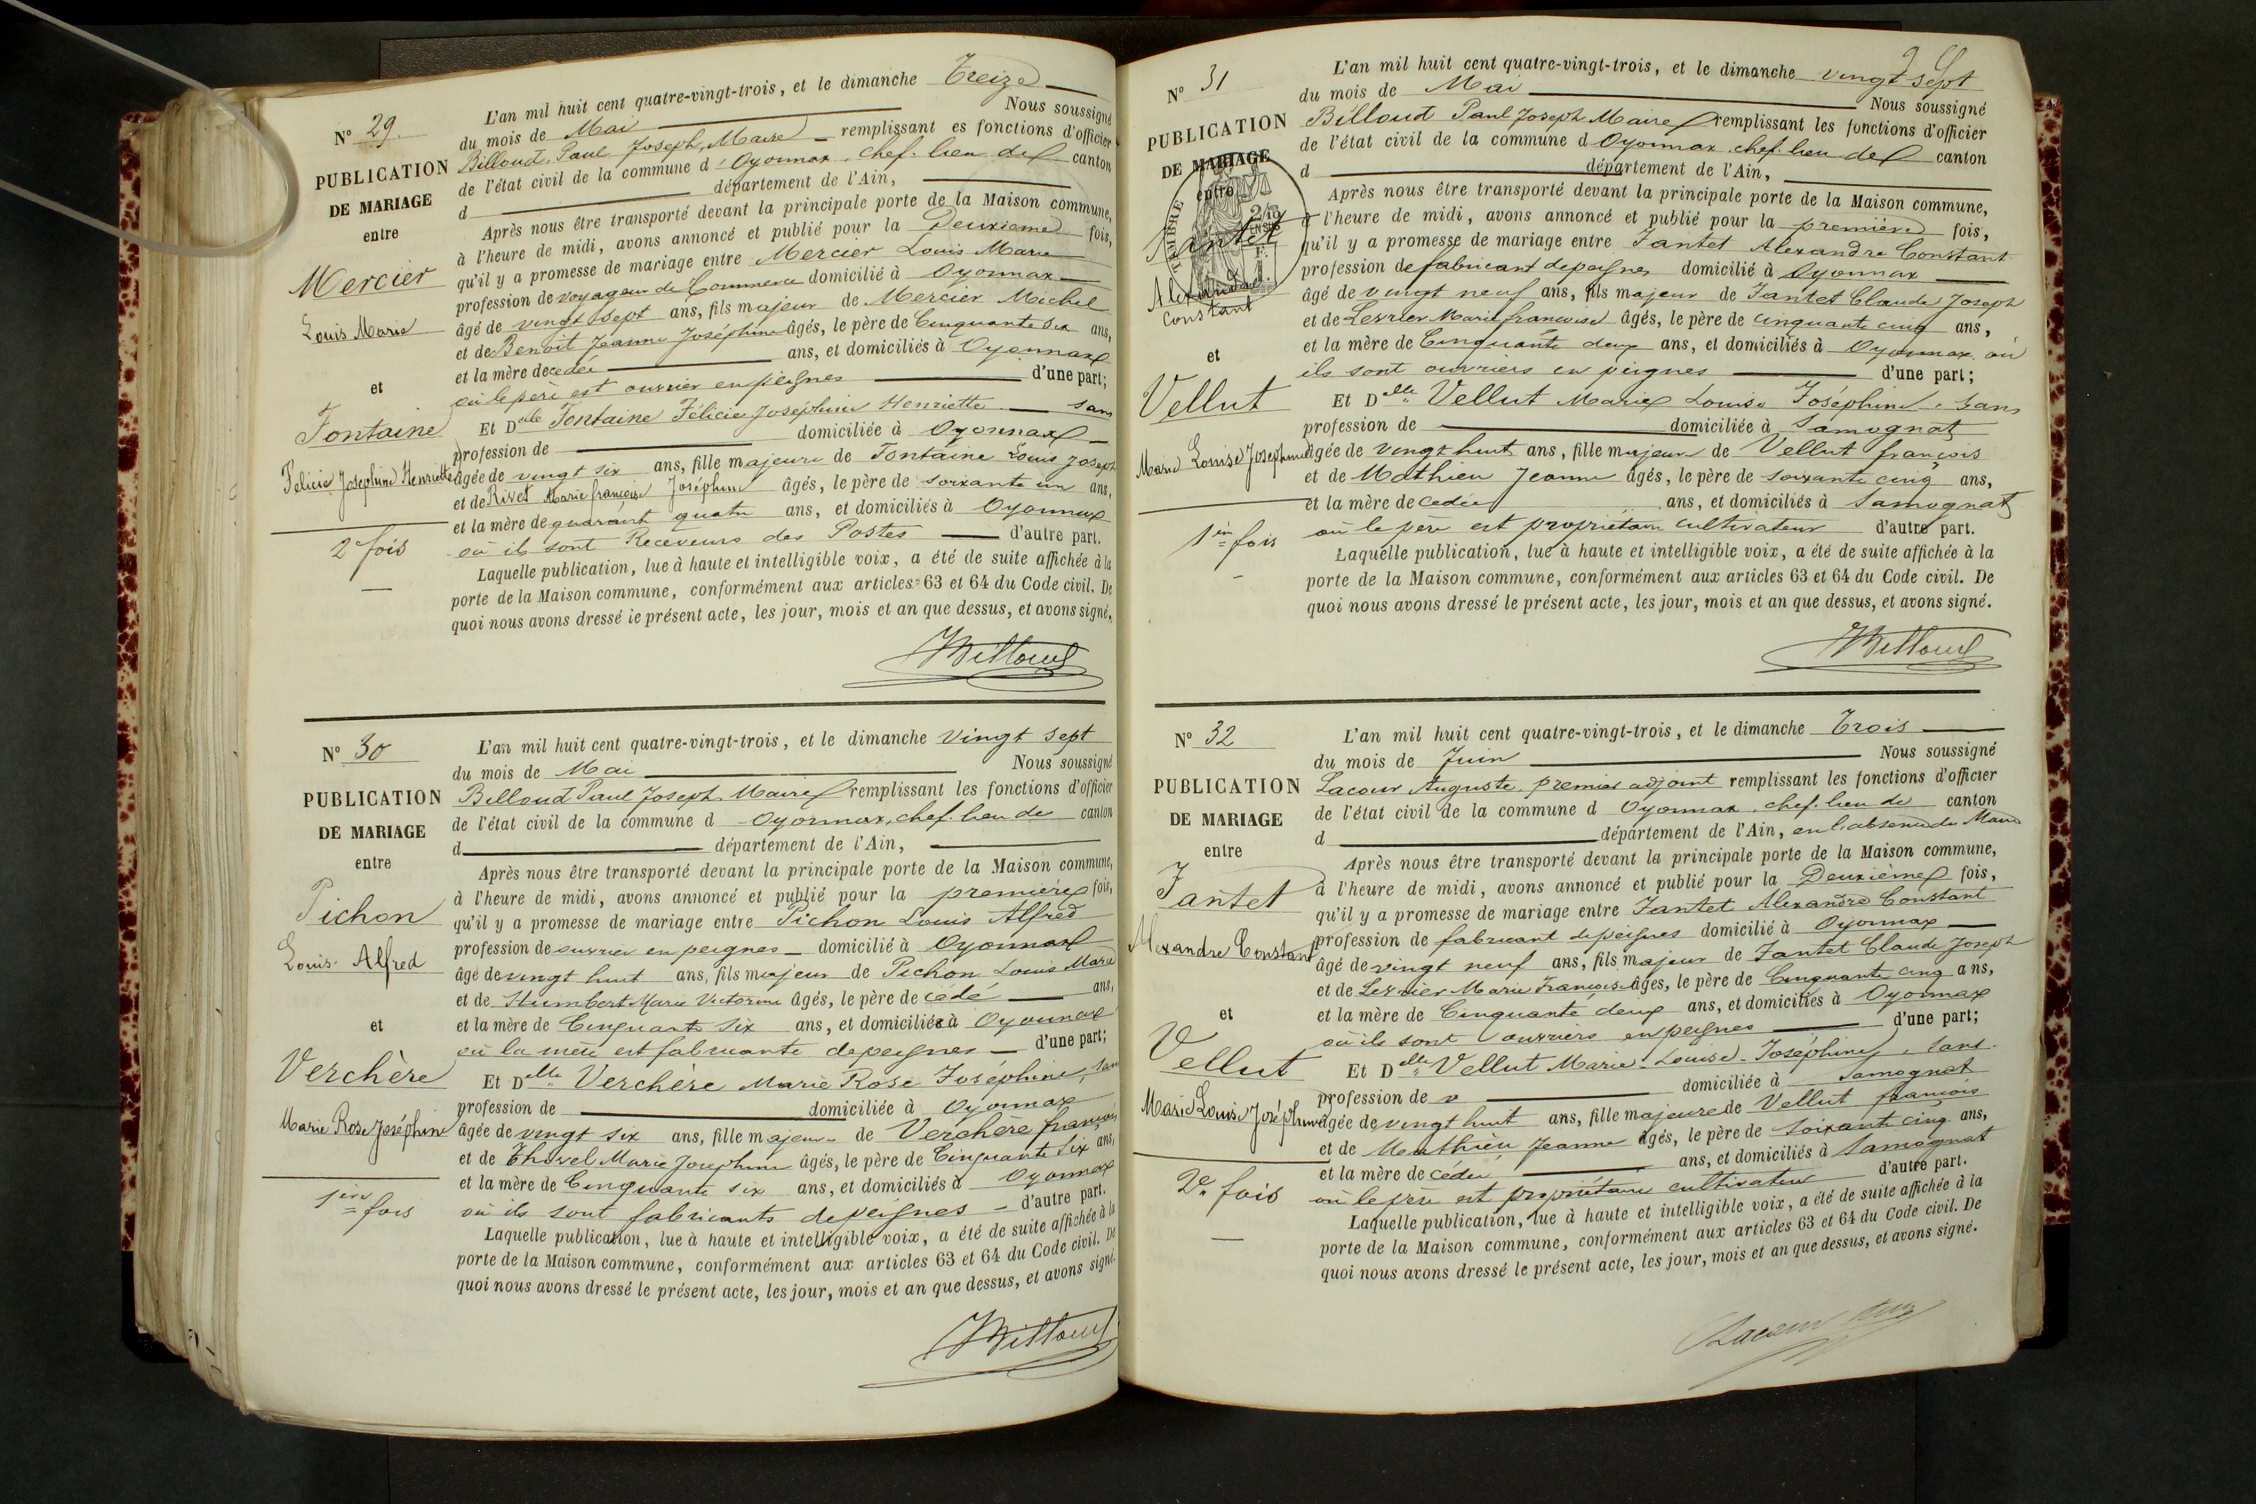 N° 29.
PUBLICATION
DE MARIAGE
entre
Mercier
Louis Marie
et
Fontaine
Félicie Joséphine Henriette
2e fois
L'an mil huit cent quatre-vingt-trois, et le dimanche Treize
du mois de Mai Nous soussigné
Billoud, Paul Joseph, Maire remplissant es fonctions d'officier
de l'état civil de la commune d'Oyonnax chef-lieu de canton
d département de l'Ain,
Après nous être transporté devant la principale porte de la Maison commune,
à l'heure de midi, avons annoncé et publié pour la Deuxième fois,
qu'il y a promesse de mariage entre Mercier Louis Marie
profession de voyageur de Commerce domicilié à Oyonnax
âgé de vingt sept ans, fils majeur de Mercier Michel
et de Benoit Jeanne Joséphine âgés, le père de Cinquante six ans,
et la mère decédée ans, et domiciliés à Oyonnax
où le père est ouvrier en peignes d'une part;
Et Delle Fontaine Félicie Joséphine Henriette sans
profession de domiciliée à Oyonnax
âgée de vingt six ans, fille majeure de Fontaine Louis Joseph
et de Rivet Marie françoise Joséphine âgés, le père de soixante un ans,
et la mère de quarante quatre ans, et domiciliés à Oyonnax
où ils sont Receveurs des Postes d'autre part.
Laquelle publication, lue à haute et intelligible voix, a été de suite affichée à la
porte de la Maison commune, conformément aux articles 63 et 64 du Code civil. De
quoi nous avons dressé le présent acte, les jour, mois et an que dessus, et avons signé.
Billoud
N° 30
PUBLICATION
DE MARIAGE
entre
Pichon
Louis Alfred
et
Verchère
Marie Rose Joséphine
1ère fois
L'an mil huit cent quatre-vingt-trois, et le dimanche vingt sept
du mois de Mai Nous soussigné
Billoud Paul Joseph Maire remplissant les fonctions d'officier
de l'état civil de la commune d Oyonnax, chef-lieu de canton
d département de l'Ain,
Après nous être transporté devant la principale porte de la Maison commune,
à l'heure de midi, avons annoncé et publié pour la première fois,
qu'il y a promesse de mariage entre Pichon Louis Alfred
profession de ouvrier en peignes domicilié à Oyonnax
âgé de vingt huit ans, fils majeur de Pichon Louis Marie
et de Humbert Marie Victorine âgés, le père de cédé ans,
et la mère de Cinquante six ans, et domiciliés à Oyonnax
où la mère est fabricante de peignes d'une part;
Et Delle Verchère Marie Rose Joséphine, sans
profession de domiciliée à Oyonnax
âgée de vingt six ans, fille majeure de Verchère françois
et de Thovel Marie Josephine âgés, le père de Cinquante six ans,
et la mère de Cinquante six ans, et domiciliés à Oyonnax
où ils sont fabricants de peignes d'autre part.
Laquelle publication, lue à haute et intelligible voix, a été de suite affichée à la
porte de la Maison commune, conformément aux articles 63 et 64 du Code civil. De
quoi nous avons dressé le présent acte, les jour, mois et an que dessus, et avons signé.
Billoud
N° 31
PUBLICATION
DE MARIAGE
entre
TIMBRE
Jantet
Alexandre
Constant
et
Vellut
Marie Louise Josephine
1ère fois
L'an mil huit cent quatre-vingt-trois, et le dimanche vingt sept
du mois de Mai Nous soussigné
Billoud Paul Joseph Maire remplissant les fonctions d'officier
de l'état civil de la commune d Oyonnax chef-lieu de canton
d département de l'Ain,
Après nous être transporté devant la principale porte de la Maison commune,
à l'heure de midi, avons annoncé et publié pour la première fois,
qu'il y a promesse de mariage entre Jantet Alexandre Constant
profession de fabricant de peignes domicilié à Oyonnax
âgé de vingt neuf ans, fils majeur de Jantet Claude Joseph
et de Levrier Marie françoise âgés, le père de cinquante cinq ans,
et la mère de Cinquante deux ans, et domiciliés à Oyonnax où
ils sont ouvriers en peignes d'une part;
Et Delle Vellut Marie Louise Joséphine, sans
profession de domiciliée à Samognat
âgée de vingt huit ans, fille majeure de Vellut françois
et de Mathieu Jeanne âgés, le père de soixante cinq ans,
et la mère de cedée ans, et domiciliés à Samognat
où le père est propriétaire cultivateur d'autre part.
Laquelle publication, lue à haute et intelligible voix, a été de suite affichée à la
porte de la Maison commune, conformément aux articles 63 et 64 du Code civil. De
quoi nous avons dressé le présent acte, les jour, mois et an que dessus, et avons signé.
Billoud
N° 32
PUBLICATION
DE MARIAGE
entre
Jantet
Alexandre Constant
et
Vellut
Marie Louise Joséphine
2e fois
L'an mil huit cent quatre-vingt-trois, et le dimanche Trois
du mois de Juin Nous soussigné
Lacour Auguste premier adjoint remplissant les fonctions d'officier
de l'état civil de la commune d Oyonnax chef-lieu de canton
d département de l'Ain, en l'absence du Maire
Après nous être transporté devant la principale porte de la Maison commune,
à l'heure de midi, avons annoncé et publié pour la Deuxième fois,
qu'il y a promesse de mariage entre Jantet Alexandre Constant
profession de fabricant de peignes domicilié à Oyonnax
âgé de vingt neuf ans, fils majeur de Jantet Claude Joseph
et de Levrier Marie Françoise âgés, le père de Cinquante cinq ans,
et la mère de Cinquante deux ans, et domiciliés à Oyonnax
où ils sont ouvriers en peignes d'une part;
Et Delle Vellut Marie Louise Joséphine, sans
profession de domiciliée à Samognat
âgée de vingt huit ans, fille majeure de Vellut françois
et de Mathieu Jeanne âgés, le père de soixante cinq ans,
et la mère de cédée ans, et domiciliés à Samognat
où le père est propriétaire cultivateur d'autre part.
Laquelle publication, lue à haute et intelligible voix, a été de suite affichée à la
porte de la Maison commune, conformément aux articles 63 et 64 du Code civil. De
quoi nous avons dressé le présent acte, les jour, mois et an que dessus, et avons signé.
Lacour